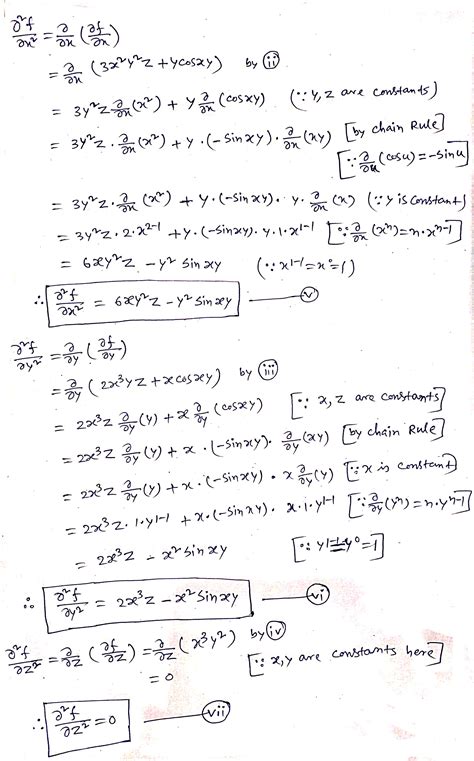 ∂²f/∂x² = ∂/∂x (∂f/∂x)
= ∂/∂x (3x²y²z + ycosxy) by (ii)
= 3y²z ∂/∂x (x²) + y ∂/∂x (cosxy) (∵ y, z are constants)
= 3y²z · ∂/∂x (x²) + y · (-sinxy) · ∂/∂x (xy) [by chain Rule]
[∵ ∂/∂u (cosu) = -sinu]
= 3y²z · ∂/∂x (x²) + y · (-sinxy) · y · ∂/∂x (x) (∵ y is constant)
= 3y²z · 2 · x²⁻¹ + y · (-sinxy) · y · 1 · x¹⁻¹ [∵ ∂/∂x (xⁿ) = n · xⁿ⁻¹]
= 6xy²z - y² sinxy (∵ x¹⁻¹ = x⁰ = 1)
∴ ∂²f/∂x² = 6xy²z - y² sinxy — (v)
∂²f/∂y² = ∂/∂y (∂f/∂y)
= ∂/∂y (2x³yz + xcosxy) by (iii)
= 2x³z ∂/∂y (y) + x ∂/∂y (cosxy) [∵ x, z are constants]
= 2x³z ∂/∂y (y) + x · (-sinxy) · ∂/∂y (xy) [by chain Rule]
= 2x³z ∂/∂y (y) + x · (-sinxy) · x ∂/∂y (y) [∵ x is constant]
= 2x³z · 1 · y¹⁻¹ + x · (-sinxy) · x · 1 · y¹⁻¹ [∵ ∂/∂y (yⁿ) = n · yⁿ⁻¹]
= 2x³z - x² sinxy [∵ y¹⁻¹ = y⁰ = 1]
∴ ∂²f/∂y² = 2x³z - x² sinxy — (vi)
∂²f/∂z² = ∂/∂z (∂f/∂z) = ∂/∂z (x³y²) by (iv)
= 0 [∵ x, y are constants here]
∴ ∂²f/∂z² = 0 — (vii)